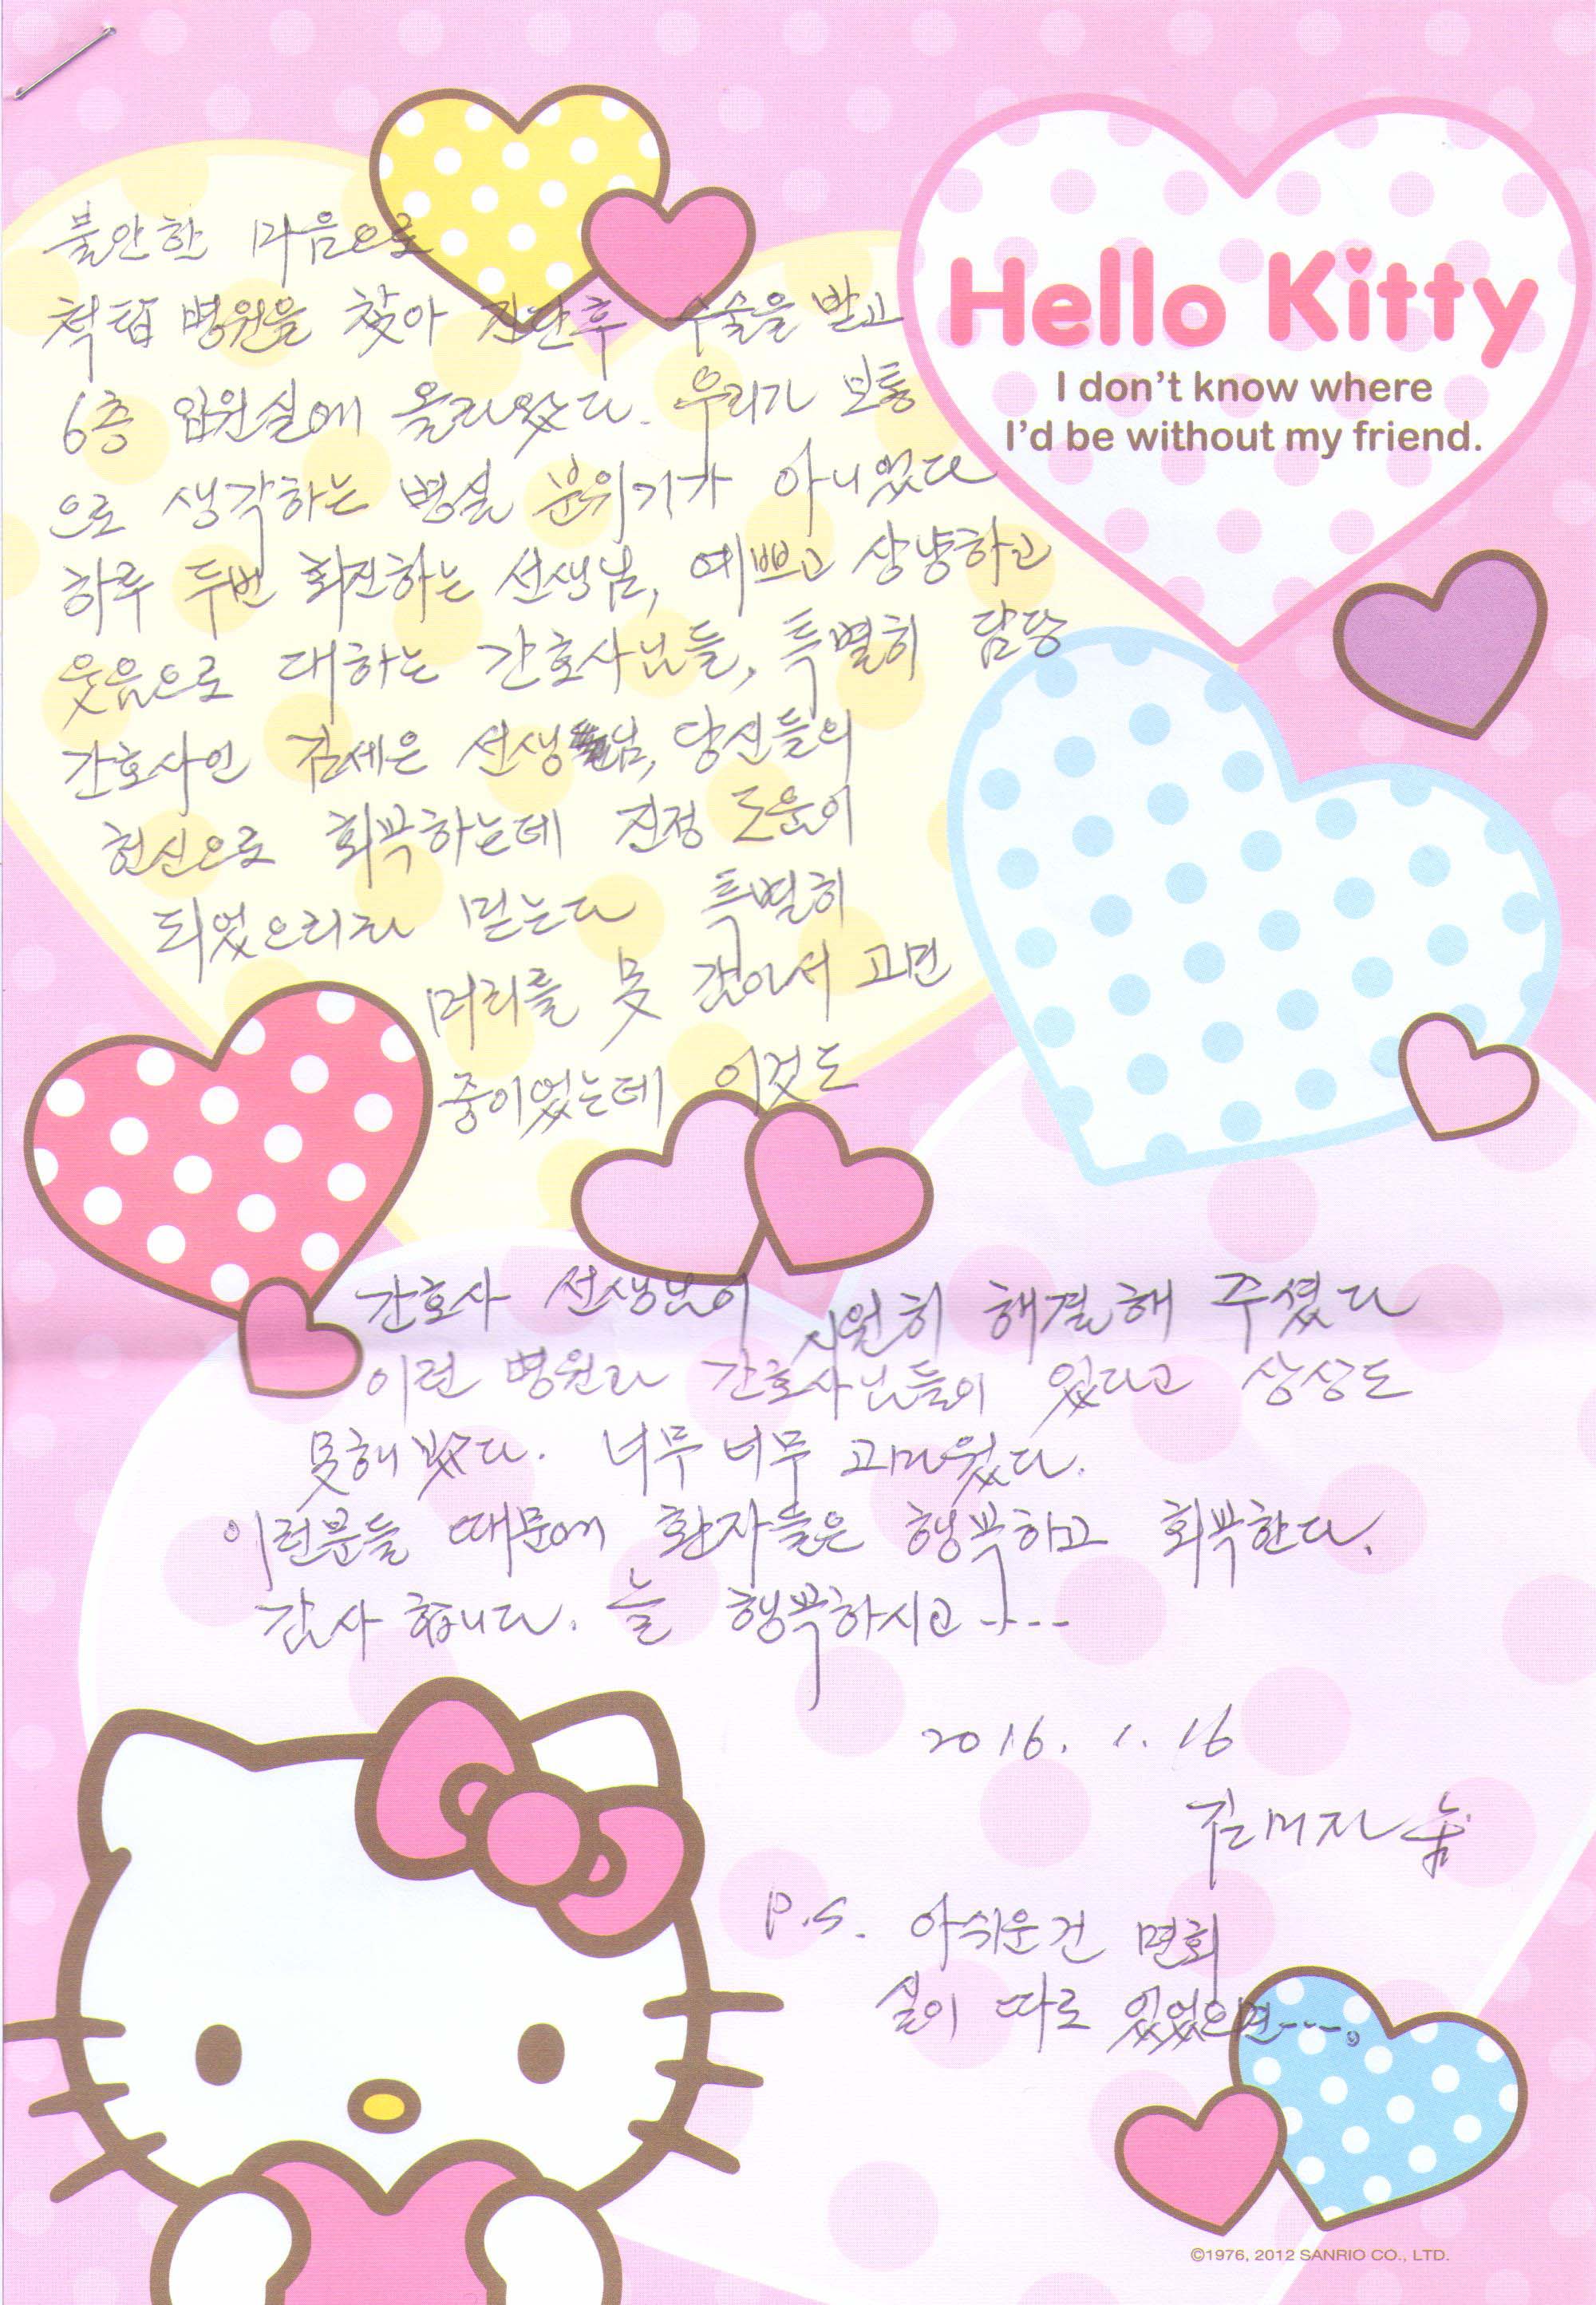 불안한 마음으로
척탑 병원을 찾아 진단후 수술을 받고
6층 입원실에 올라왔다. 우리가 보통
으로 생각하는 병실 분위기가 아니었다
하루 두번 회진하는 선생님, 예쁘고 상냥하고
웃음으로 대하는 간호사님들, 특별히 담당
간호사인 김세은 선생님, 당신들의
헌신으로 회복하는데 진정 도움이
되었으리라 믿는다 특별히
머리를 못 감아서 고민
중이었는데 이것도
간호사 선생님이 시원히 해결해 주셨다
이런 병원과 간호사님들이 있다고 상상도
못해 봤다. 너무 너무 고마웠다.
이런분들 때문에 환자들은 행복하고 회복한다.
감사 합니다. 늘 행복하시고----
2016. 1. 16
P.S. 아쉬운건 면회
실이 따로 있었으면----.
Hello Kitty
I don't know where
I'd be without my friend.
©1976, 2012 SANRIO CO., LTD.